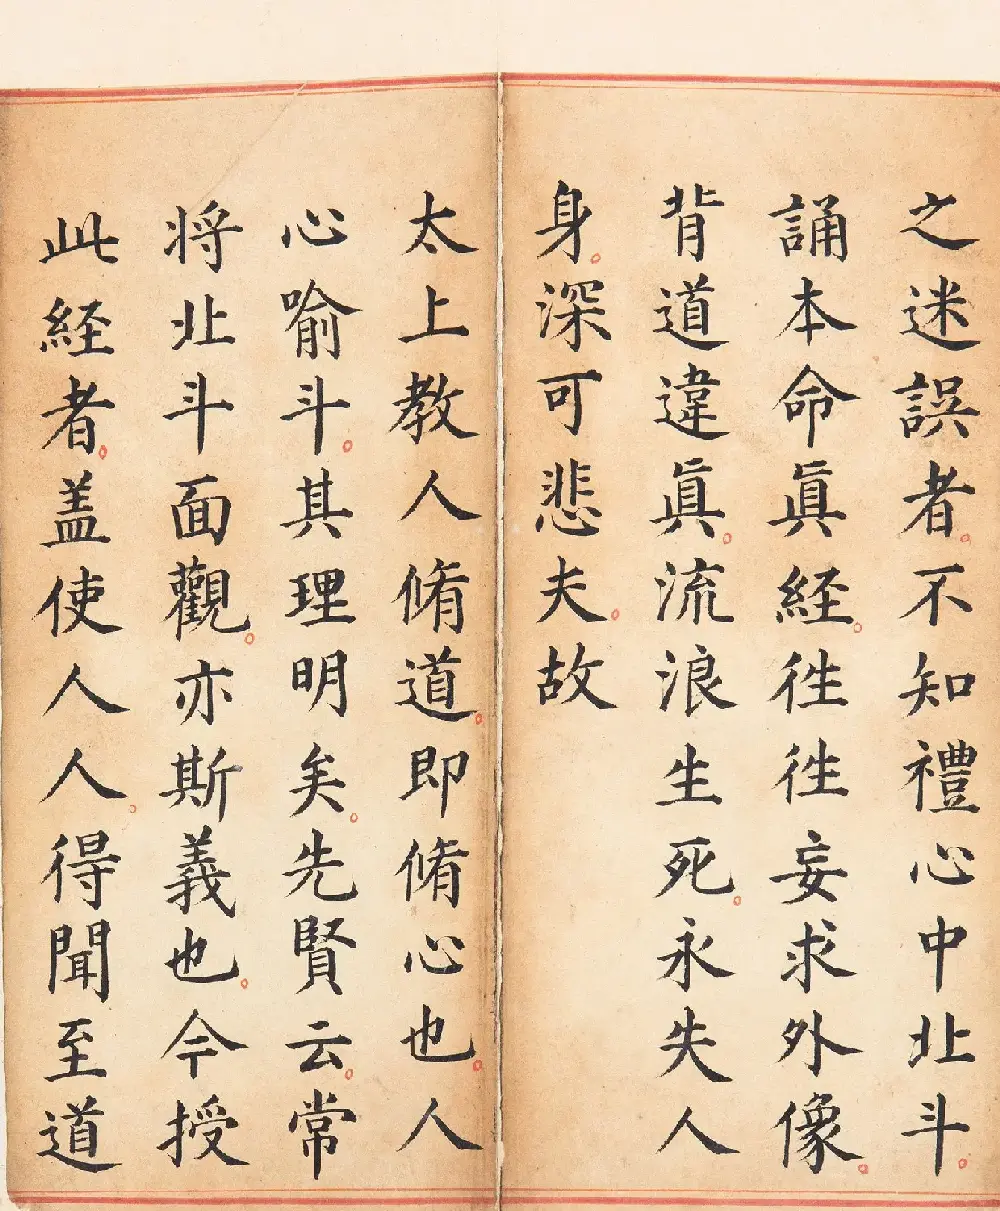 之迷誤者。不知禮心中北斗。
誦本命眞経。徃徃妄求外像。
背道違眞。流浪生死。永失人
身。深可悲夫。故
太上教人脩道。即脩心也。人
心喻斗。其理明矣。先賢云。常
将北斗面觀。亦斯義也。今授
此経者。盖使人人。得聞至道